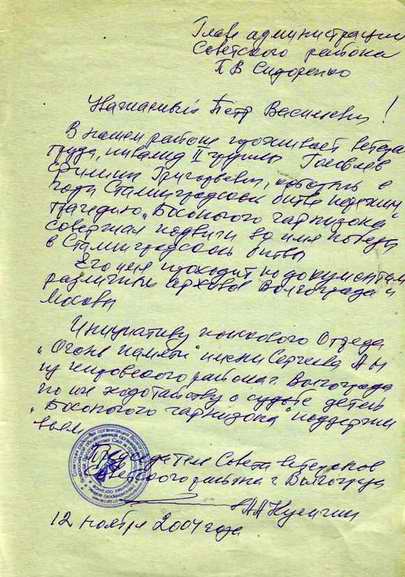 Главе администрации
Советского района
П В Сидоренко
Уважаемый Петр Васильевич!
В нашем районе проживает ветеран
труда, инвалид II группы Головлев
Григорьевич, в
годы Сталинградской битвы пережил
трагедию "Босоногого гарнизона"
совершая подвиги во имя победы
в Сталинградской битве
Его имя проходит по документам
различных архивов Волгограда и
Москвы
Инициативу поискового Отряда
"Огонь памяти" имени Сергеева А Н
из Кировского района г. Волгограда
по их ходатайству о судьбе детей
"Босоногого гарнизона" поддержи
ваем
Председатель Совета ветеранов
Советского района г Волгограда
12 ноября 2004 года